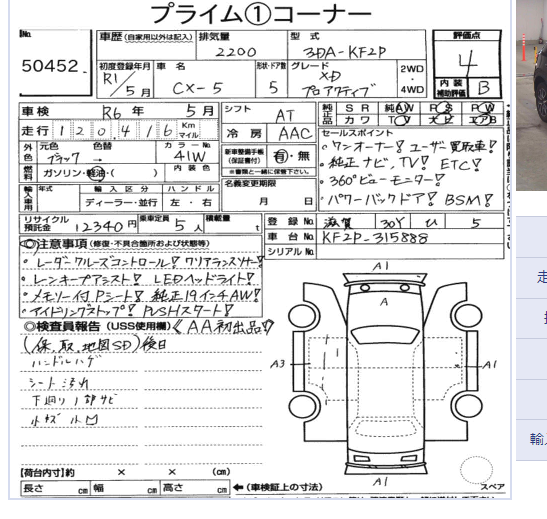 プライム①コーナー
No.
50452
車歴 (自家用以外は記入)
排気量
2200
型式
3DA-KF2P
評価点
4
内装
補助評価
B
初度登録年月
R1/5月
車名
CX-5
形状・ドア数
5
グレード
XD
プロアクティブ
2WD
・
4WD
車検
R6年 5月
シフト
AT
純正品
SR 純AW PS PW
カワ TV エアB
走行
120,416 Km マイル
冷房
AAC
セールスポイント
・ワンオーナー!ユーザー買取車!
・純正ナビ,TV! ETC!
・360°ビューモニター!
・パワーバックドア! BSM!
外色
元色
ブラック
色替
→
カラーNo.
41W
新車整備手帳
(保証書付)
有・無
※書類と一緒に保管下さい。
燃料
ガソリン・軽油・( )
内装色
名義変更期限
月 日
輸入車用
年式
輸入区分
ディーラー・並行
ハンドル
左・右
リサイクル
預託金
12340円
乗車定員
5人
積載量
t
登録No.
滋賀 301 ひ 5
車台No.
KF2P-315888
シリアルNo.
◎注意事項 (修復・不具合箇所および状態等)
・レーダークルーズコントロール! クリアランスソナー!
・レーンキープアシスト! LEDヘッドライト!
・メモリー付Pシート! 純正19インチAW!
・アイドリングストップ! PUSHスタート!
◎検査員報告 (USS使用欄) 《AA初出品!》
(保,取,地図SD)後日
ハンドルハゲ
シート汚れ
下廻り1部サビ
小キズ 小凹
A1
A
A3
A1
A1
スペア
【荷台内寸】約 × × (cm)
長さ cm 幅 cm 高さ cm
←(車検証上の寸法)
走
輸